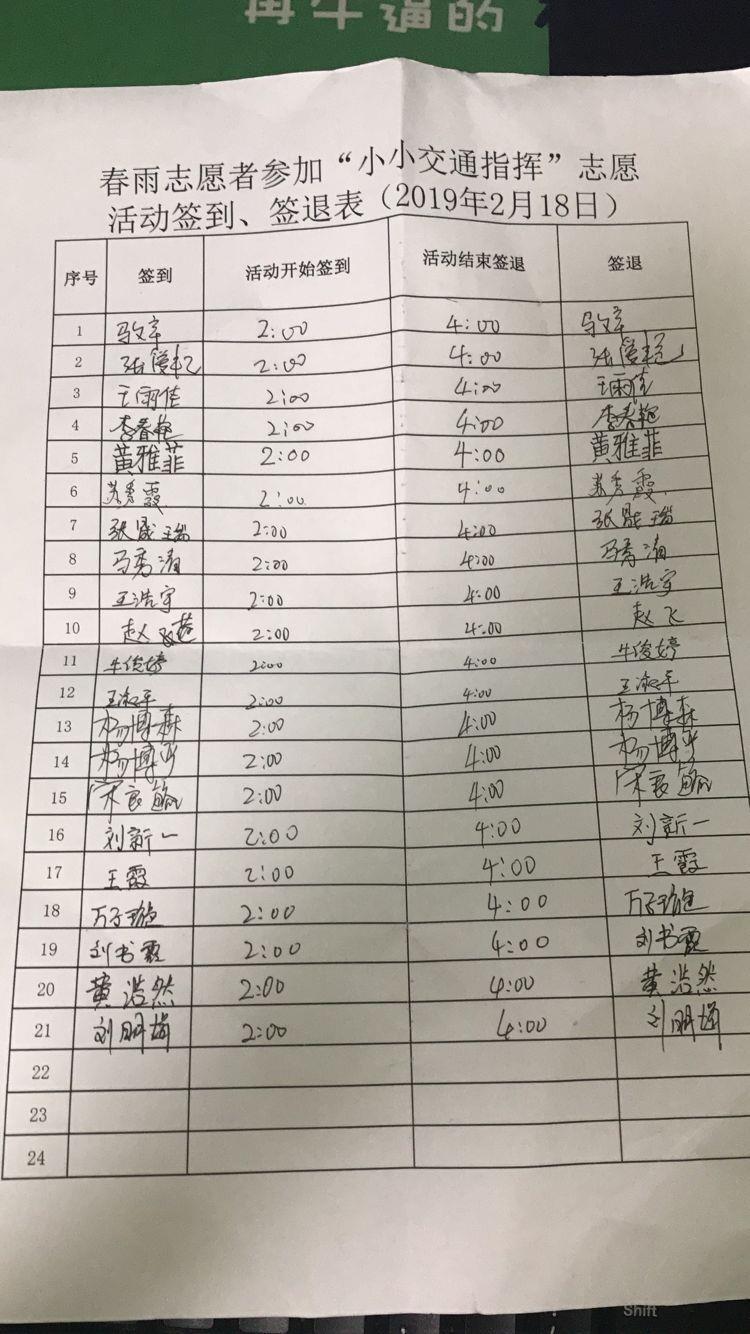 再牛逼的
春雨志愿者参加“小小交通指挥”志愿
活动签到、签退表（2019年2月18日）
序号 签到 活动开始签到 活动结束签退 签退
1 2:00 4:00
2 2:00 4:00
3 王雨佳 2:00 4:00 王雨佳
4 李春艳 2:00 4:00 李春艳
5 黄雅菲 2:00 4:00 黄雅菲
6 苏秀霞 2:00 4:00 苏秀霞
7 张晟瑞 2:00 4:00 张晟瑞
8 马秀清 2:00 4:00 马秀清
9 王浩宇 2:00 4:00 王浩宇
10 赵飞 2:00 4:00 赵飞
11 牛俊婷 2:00 4:00 牛俊婷
12 王淑平 2:00 4:00 王淑平
13 杨博森 2:00 4:00 杨博森
14 杨博 2:00 4:00 杨博
15 宋 2:00 4:00 宋
16 刘新一 2:00 4:00 刘新一
17 王霞 2:00 4:00 王霞
18 万子璇 2:00 4:00 万子璇
19 刘书霞 2:00 4:00 刘书霞
20 黄浩然 2:00 4:00 黄浩然
21 刘明 2:00 4:00 刘明
22
23
24
Shift